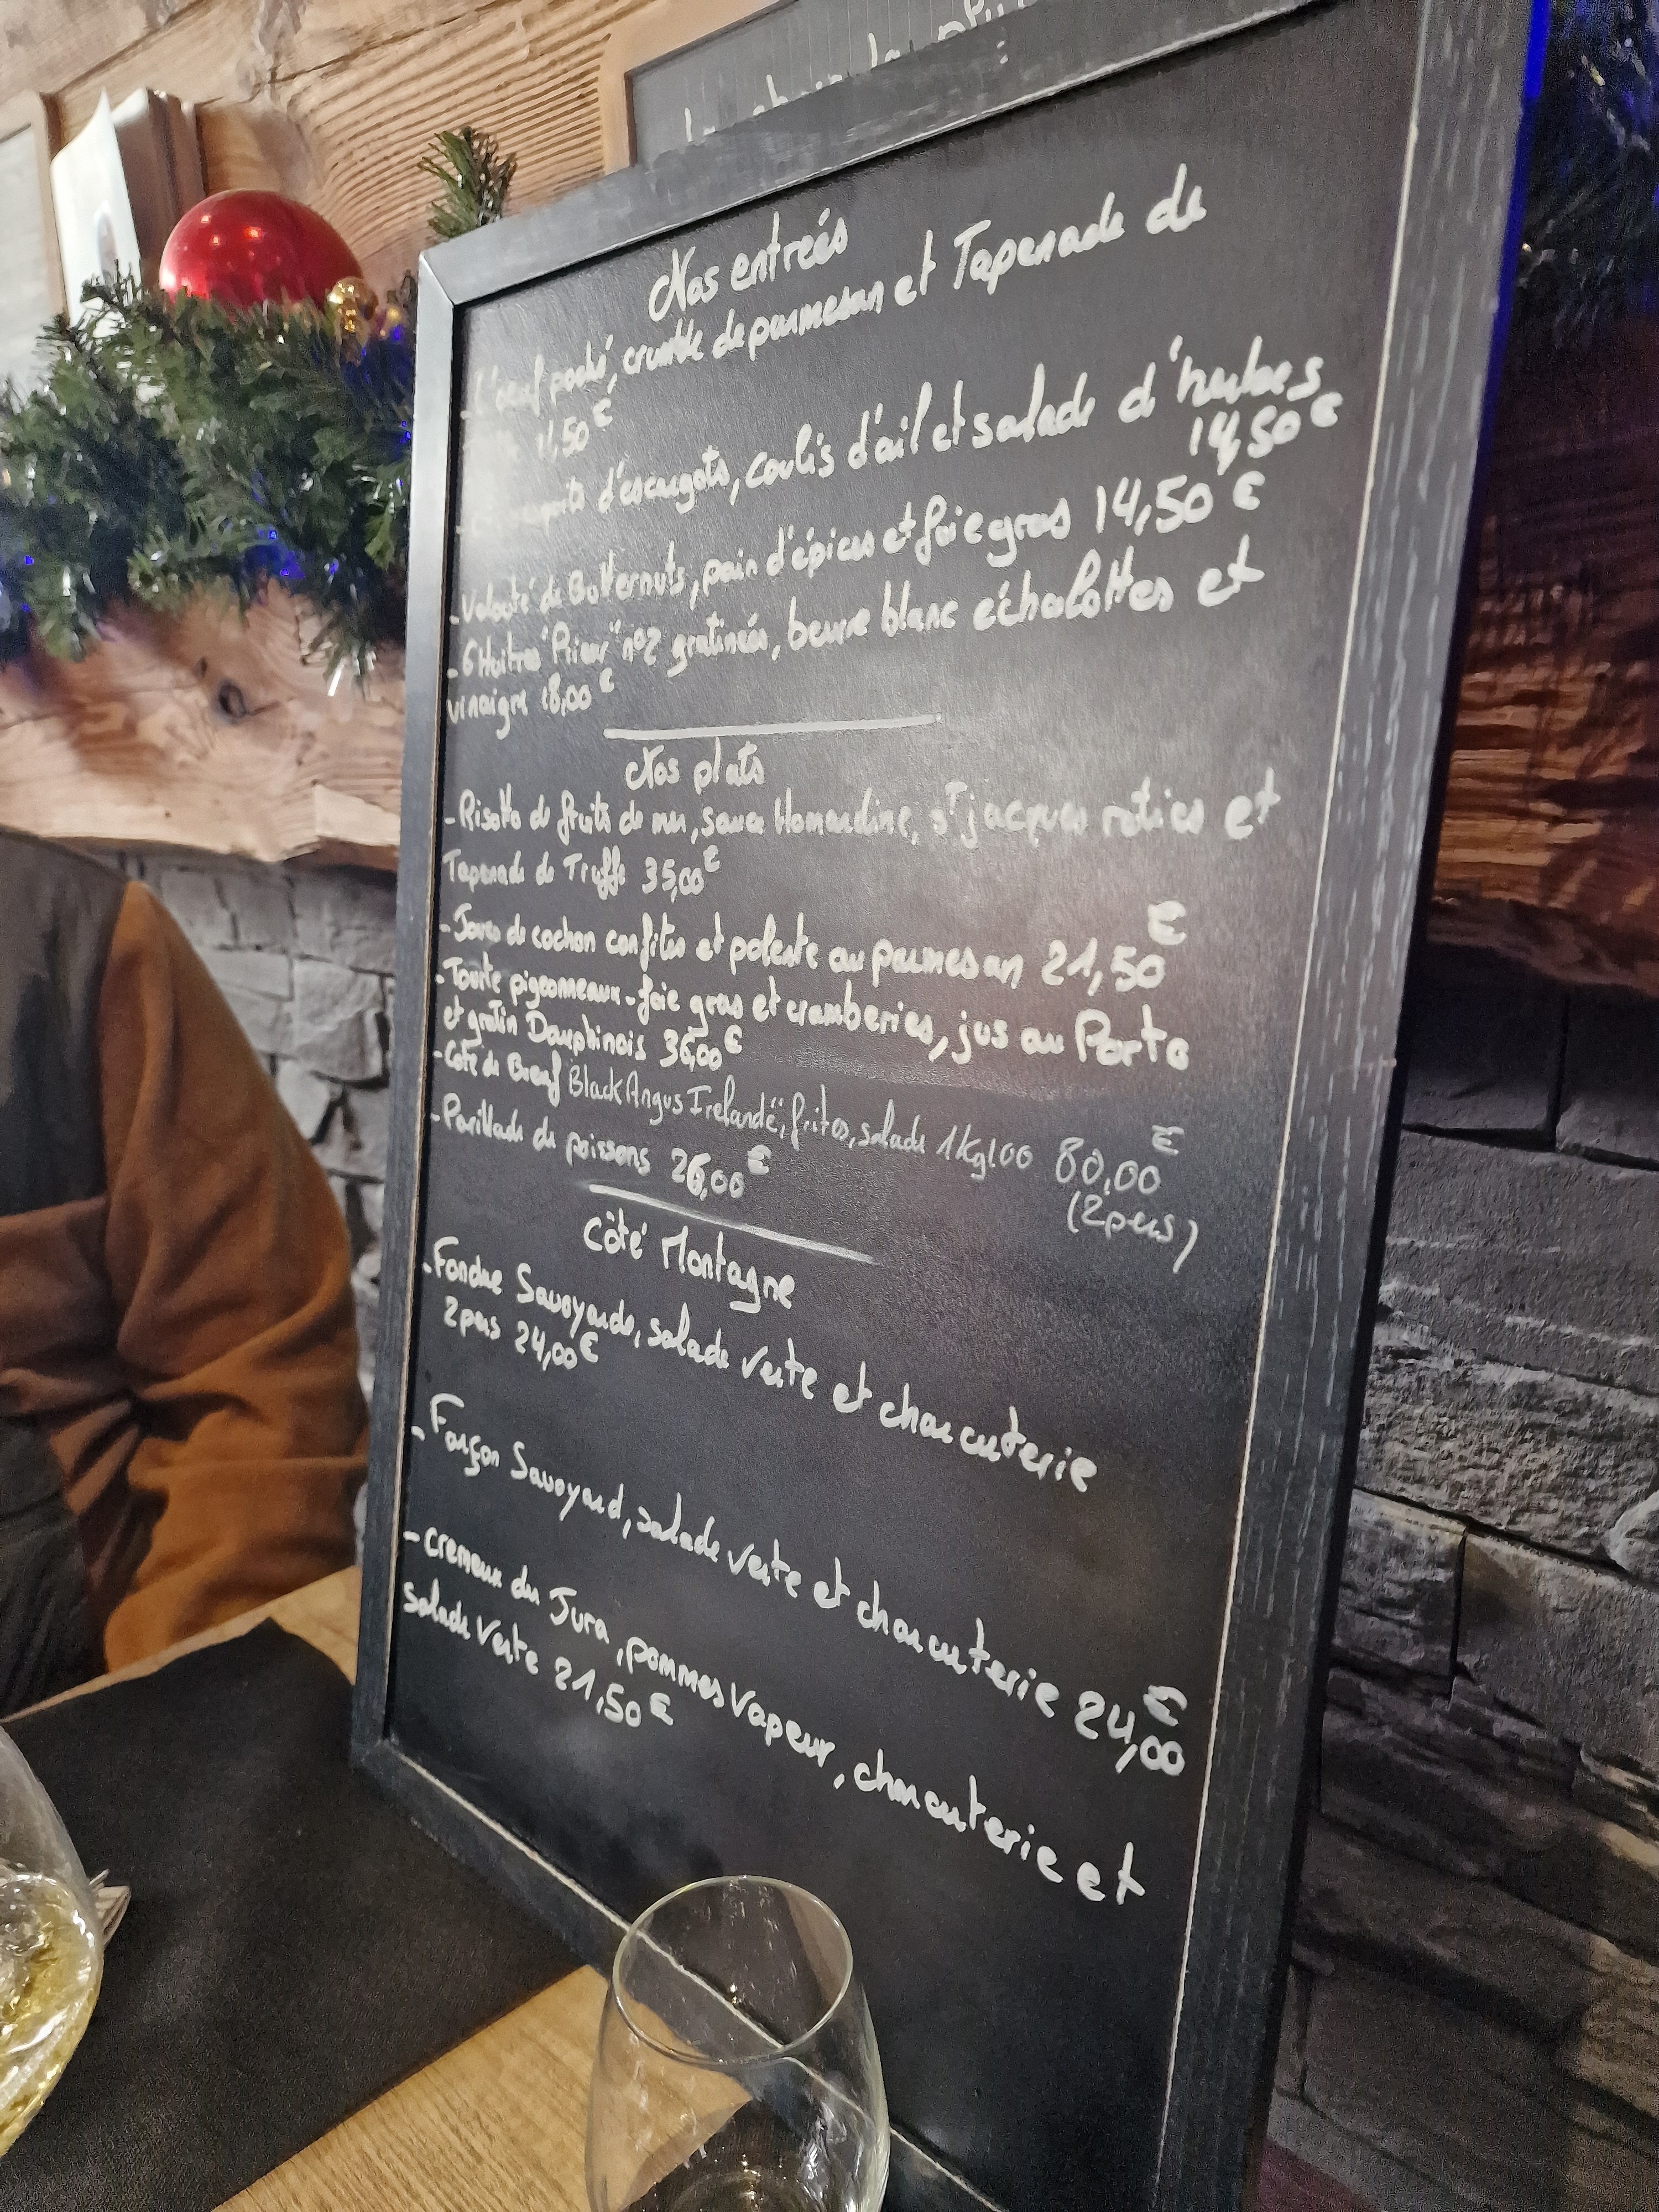 Nos entrées
- L'oeuf poché, crumble de parmesan et Tapenade de
11,50€
d'escargots, coulis d'ail et salade d'herbes
14,50€
- Velouté de Butternuts, pain d'épices et foie gras 14,50€
- 6 Huitres "Prieur" n°2 gratinées, beurre blanc échalottes et
vinaigre 18,00€
Nos plats
- Risotto de fruits de mer, sauce Homardine, St jacques roties et
Tapenade de Truffe 35,00€
- Joues de cochon confites et polente au parmesan 21,50€
- Tourte pigeonneaux - foie gras et cramberies, jus au Porto
et gratin Dauphinois 36,00€
- Côte de Boeuf Black Angus Irelande, frites, salade 1Kg100 80,00€
(2pers)
- Parillade de poissons 26,00€
Côté Montagne
- Fondue Savoyarde, salade verte et charcuterie
2pers 24,00€
- Farçon Savoyard, salade verte et charcuterie 24,00€
- cremeux du Jura, pommes vapeur, charcuterie et
salade verte 21,50€